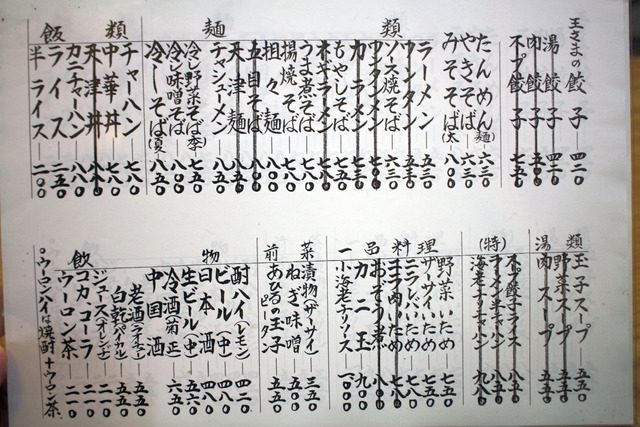 王さまの餃子 四二〇
湯餃子
肉餃子 五〇〇
餃子 七五〇
たんめん 六三〇
やきそば 六三〇
みそそば(太麺) 八〇〇
麺類
ラーメン 五三〇
ワンタン 五三〇
ソース焼そば 六三〇
ワンタンメン
ラーメン 七三〇
ネギラーメン
もやしそば 七三〇
うま煮そば 七八〇
揚焼そば 七八〇
担々麺 八〇〇
五目そば 八〇〇
天津麺 八五〇
チャシューメン 八五〇
冷し野菜そば(季) 八五〇
冷し味噌そば 八五〇
冷しそば(夏) 八五〇
飯類
チャーハン 七八〇
中華丼 七八〇
天津丼 八八〇
カニチャーハン 八八〇
ライス 二五〇
半ライス 二〇〇
湯類
玉子スープ 五五〇
野菜スープ 五五〇
肉スープ 五五〇
(特)
餃子ライス 八五〇
ラーメン半チャハン
海老チャーハン 九八〇
一品料理
野菜いため 七五〇
ザーサイいため 七五〇
ニラレバいため 七八〇
ニラ肉いため 七八〇
カニ玉 九〇〇
小海老チリソース 一〇〇〇
前菜
漬物(ザーサイ) 三五〇
ねぎ味噌 五五〇
あひるの玉子(ピータン) 五五〇
飲物
酎ハイ(レモン) 四二〇
ビール(中) 四八〇
日本酒 四八〇
生ビール(中) 五六〇
冷酒(菊正) 六五〇
中国酒
老酒(ラオチュー) 五五〇
白乾(パイカル) 五五〇
ジュース(オレンヂ) 二一〇
コカ・コーラ 二一〇
ウーロン茶 二一〇
○ウーロンハイは焼酎+ウーロン茶